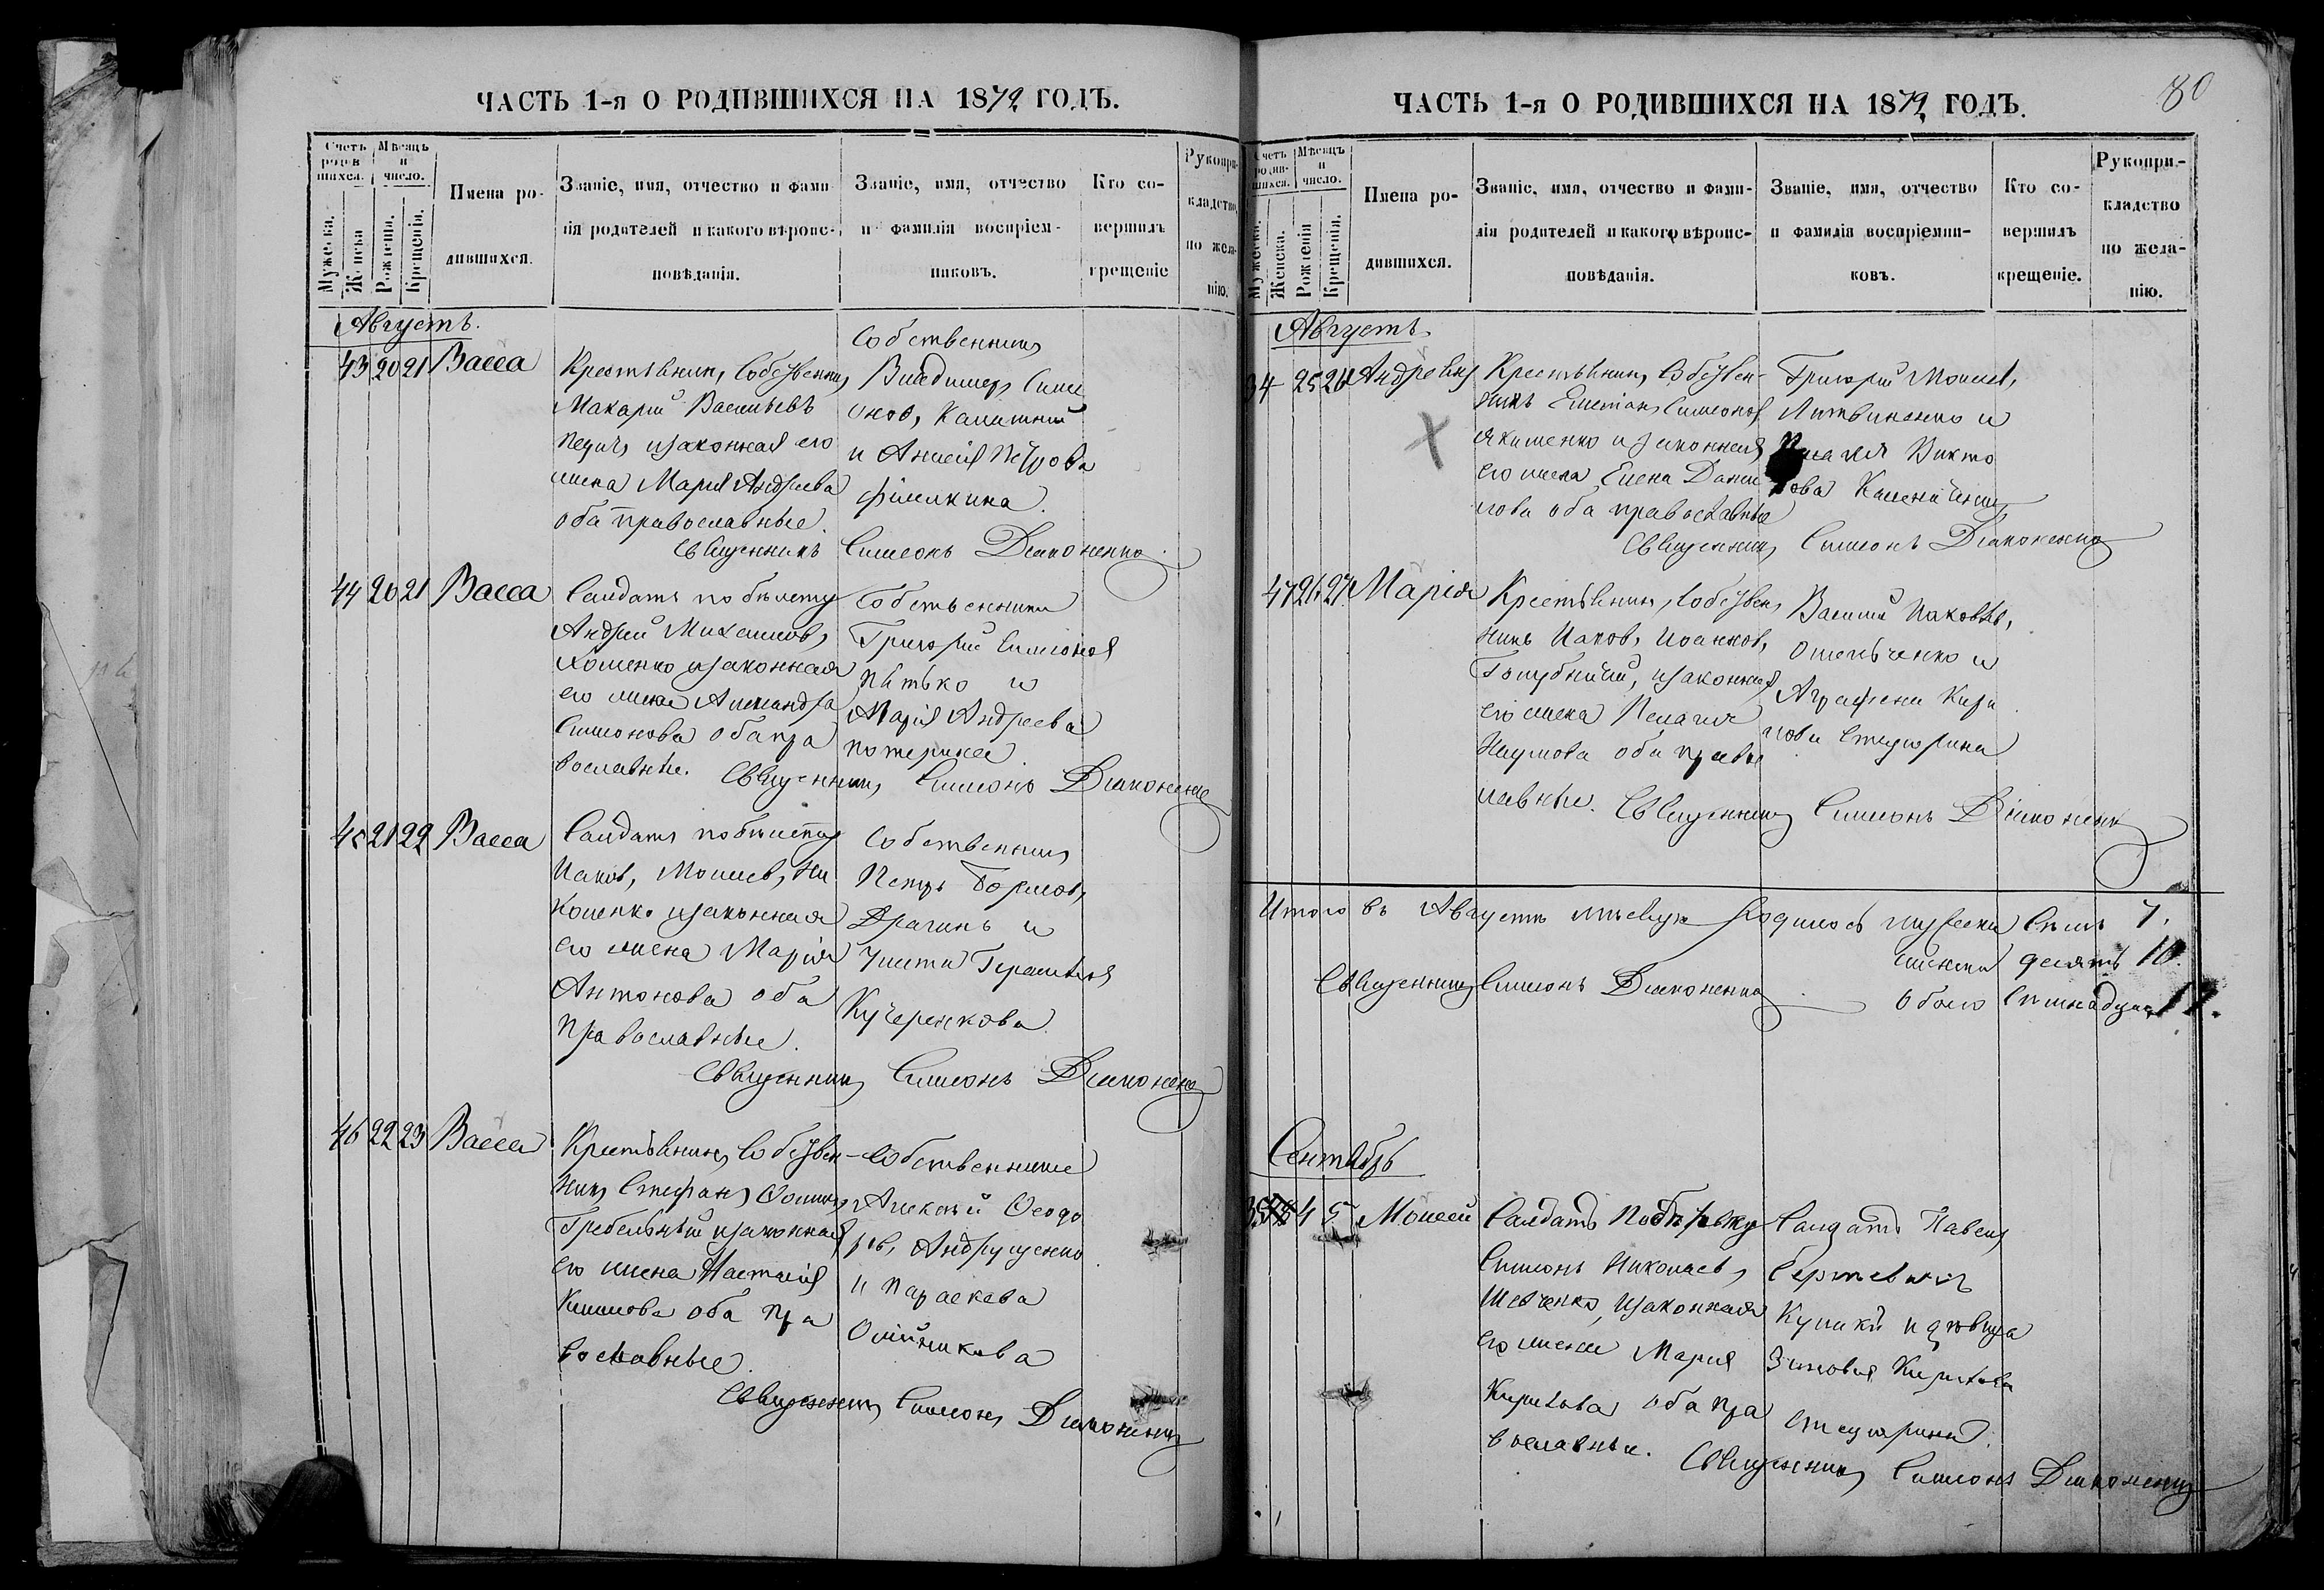 ЧАСТЬ 1-я О РОДИВШИХСЯ НА 1872 ГОДЪ.
Счетъ родившихся.
Мѣсяцъ и число.
Мужеска.
Женска
Рожденія.
Крещенія.
Имена ро-
дившихся.
Званіе, имя, отчество и фами-
лія родителей и какого вѣроис-
повѣданія.
Званіе, имя, отчество
и фамилія воспріем-
никовъ.
Кто со-
вершилъ
крещеніе
Рукопри-
кладство
по жела-
нію.
Августъ.
43 20 21 Васса
Крестьянинъ, Собствен
Макарій Васильевъ
законная его
жена Марія Андреева
оба православные.
Собственникъ
Владимиръ Симе
оновъ, Калитній
и Анисія Петрова
Священникъ Симеонъ Дьяконенко.
44 20 21 Васса
Солдатъ по билету
Андрей Михаиловъ,
Хоменко и законная
его жена Александра
Симонова оба пра
вославные.
Собственники
Григорій Симонов
Пѣтько и
Марія Андреева
Священникъ Симеонъ Дьяконенко
45 21 22 Васса
Солдатъ по билету
Иаковъ, Моисеев, Ни
коненко и законная
его жена Марія
Антонова оба
православные.
Собственникъ
Петръ Борисов,
Драчинъ и
Герасимова
Кучеренкова
Священникъ Симеонъ Дьяконенко
46 22 23 Васса
Крестьянинъ, Собствен-
никъ Стефанъ Фоминъ
Гребельный и законная
его жена Настасія
Климова оба пра
вославные.
Собственники
Алексѣй Ѳеодо
ров, Андрущенко
и Параскева
Олійникова
Священникъ Симеонъ Дьяконенко
80
ЧАСТЬ 1-я О РОДИВШИХСЯ НА 1872 ГОДЪ.
Счетъ родив-
шихся.
Мѣсяцъ
и
число.
Мужеска.
Женска.
Рожденія
Крещенія.
Имена ро-
дившихся.
Званіе, имя, отчество и фами-
лія родителей и какого вѣроис-
повѣданія.
Званіе, имя, отчество
и фамилія воспріемни-
ковъ.
Кто со-
вершилъ
крещеніе.
Рукопри-
кладство
по жела-
нію.
Августъ.
34 25 26 Андреянъ
Крестьянинъ, Собствен-
никъ Симеонов
Якименко и законная
его жена Елена Дани
лова оба православные
Григорій Моисеев,
Литвиненко и
Пелагия Викто
рова
Священникъ Симеонъ Дьяконенко
47 26 27 Марія
Крестьянинъ, Собствен
никъ Иаков, Иоаннов,
Голубничій, и законная
его жена Пелагия
Наумова оба право
славные.
Василій Иаковлев,
Омельченко и
Аграфена Кири
лова Стецюрина
Священникъ Симеонъ Дьяконенко
Итого въ Августѣ мѣсяцѣ родилось мужеска Семь 7.
женска десять 10.
Священникъ Симеонъ Дьяконенко обоего Семнадцать 17.
Сентябрь
35 4 5 Моисей
Солдатъ
Симеонъ Николаев,
Шевченко, и законная
его жена Мария
Кирилова оба пра
вославные.
Солдатъ Павелъ
Сергѣевичъ
и дѣвица
Зиновия Кирилова
Стецюрина.
Священникъ Симеонъ Дьяконенко